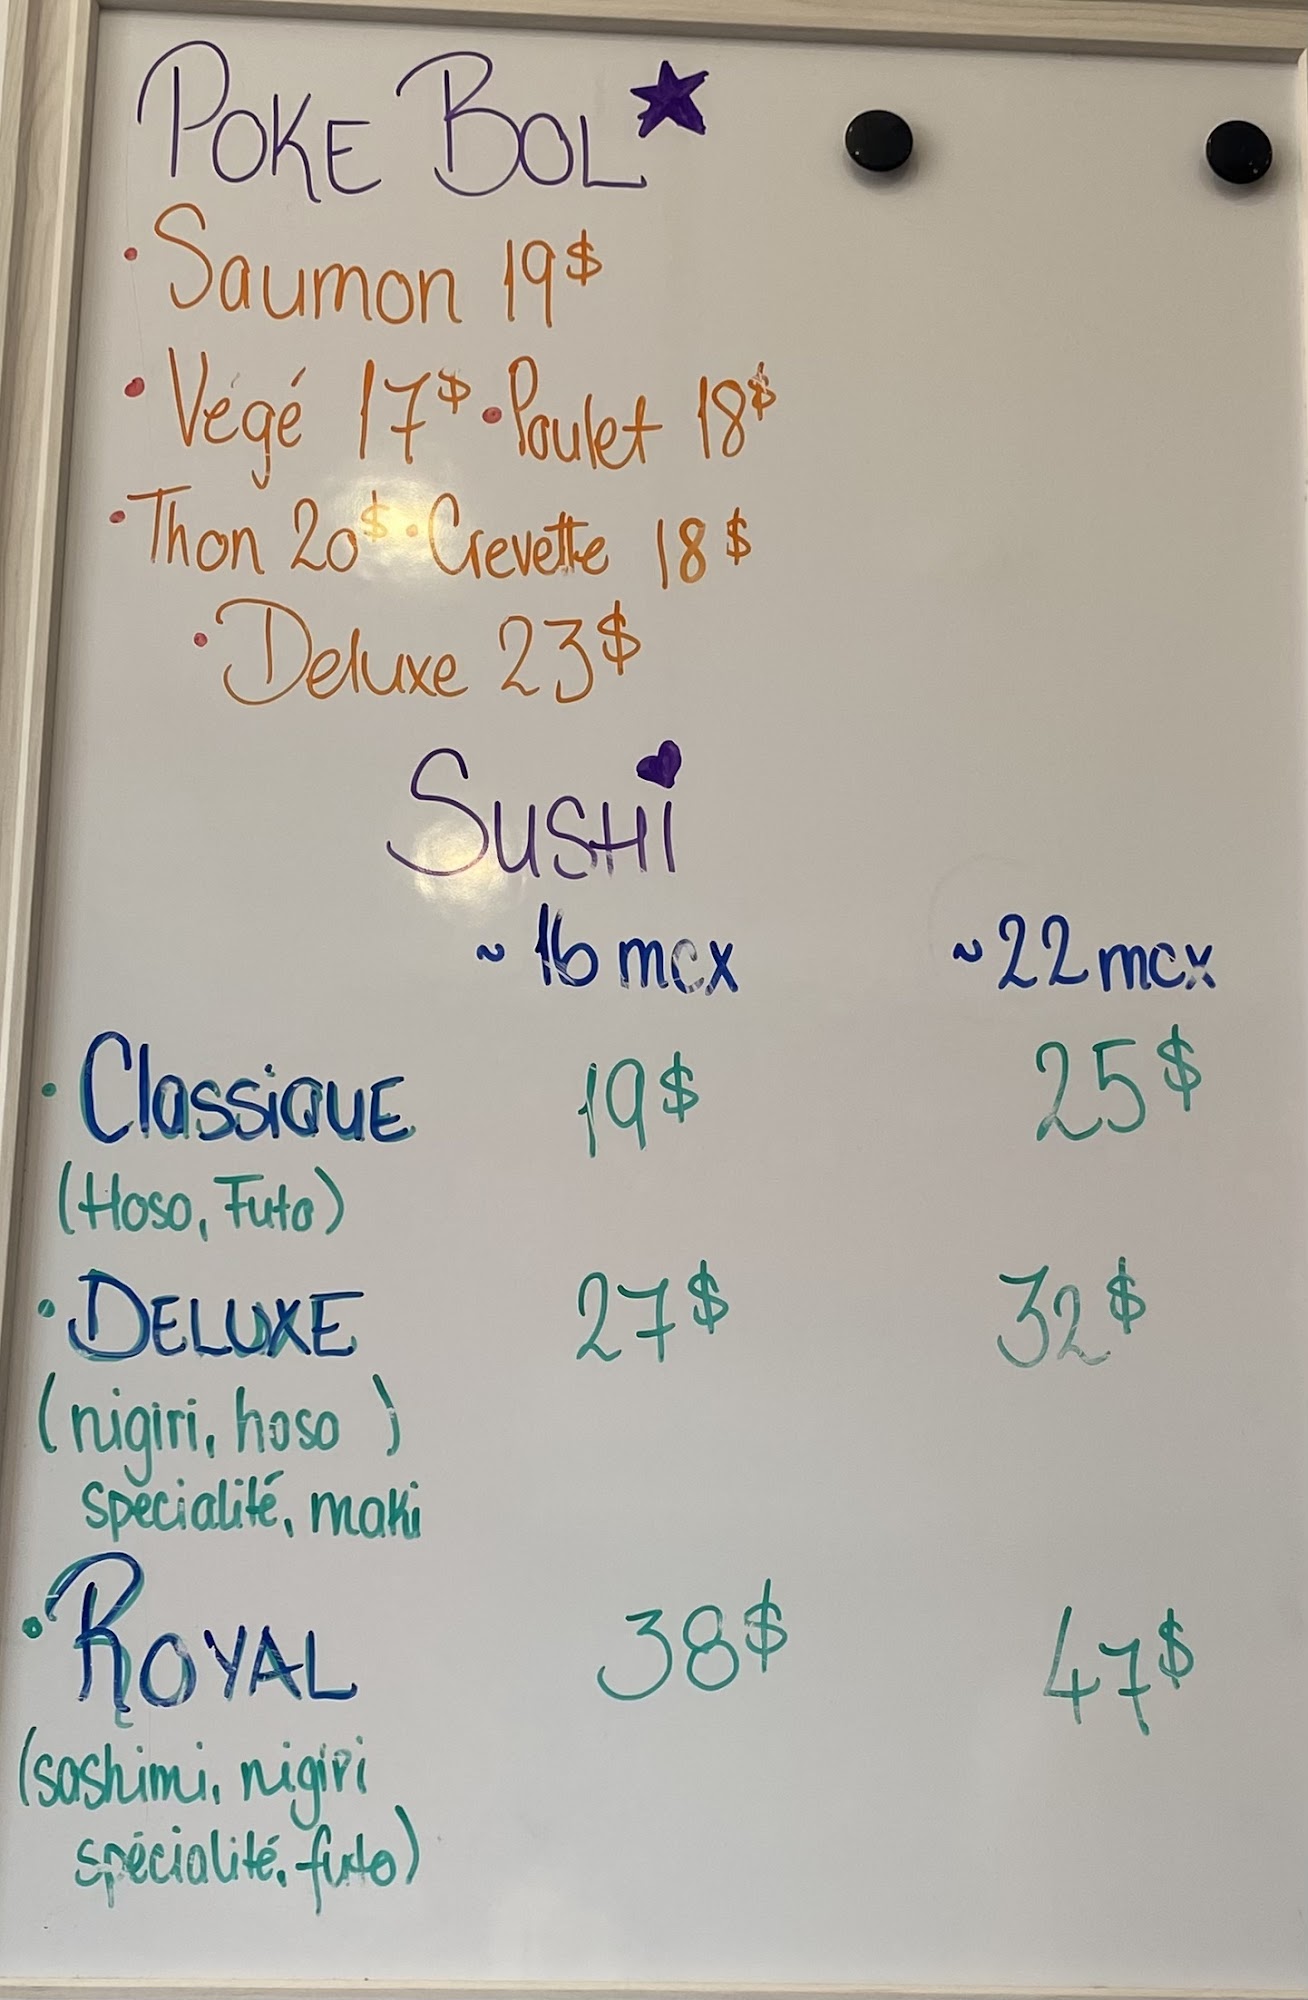 POKE BOL
• Saumon 19$
• Végé 17$ • Poulet 18$
• Thon 20$ • Crevette 18$
• Deluxe 23$
SUSHi
~ 16 mcx ~ 22 mcx
• ClassiQUE 19$ 25$
(Hoso, Futo)
• DELUXE 27$ 32$
(nigiri, hoso )
spécialité, maki
• ROYAL 38$ 47$
(sashimi, nigiri
spécialité, futo)